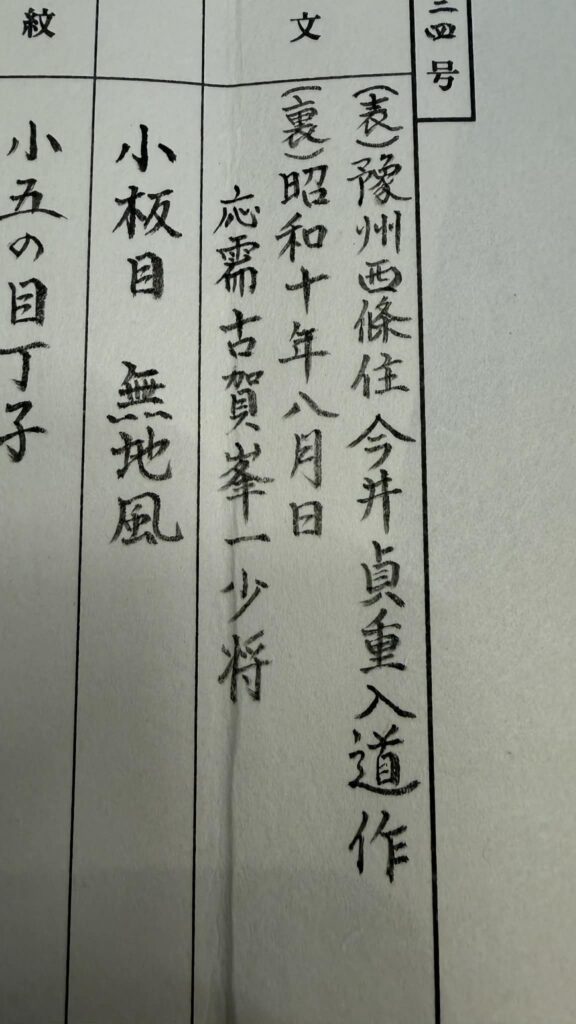 二四号
文
(表)豫州西條住 今井貞重入道作
(裏)昭和十年八月日
応需古賀峯一少将
小板目 無地風
紋
小五の目丁子